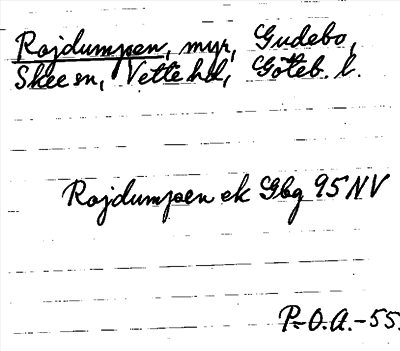 Rojdumpen, myr, Gudebo,
Skee sn, Vette hd, Göteb. l.
Rojdumpen ek Gbg 95 NV
P.-O.A.-55.